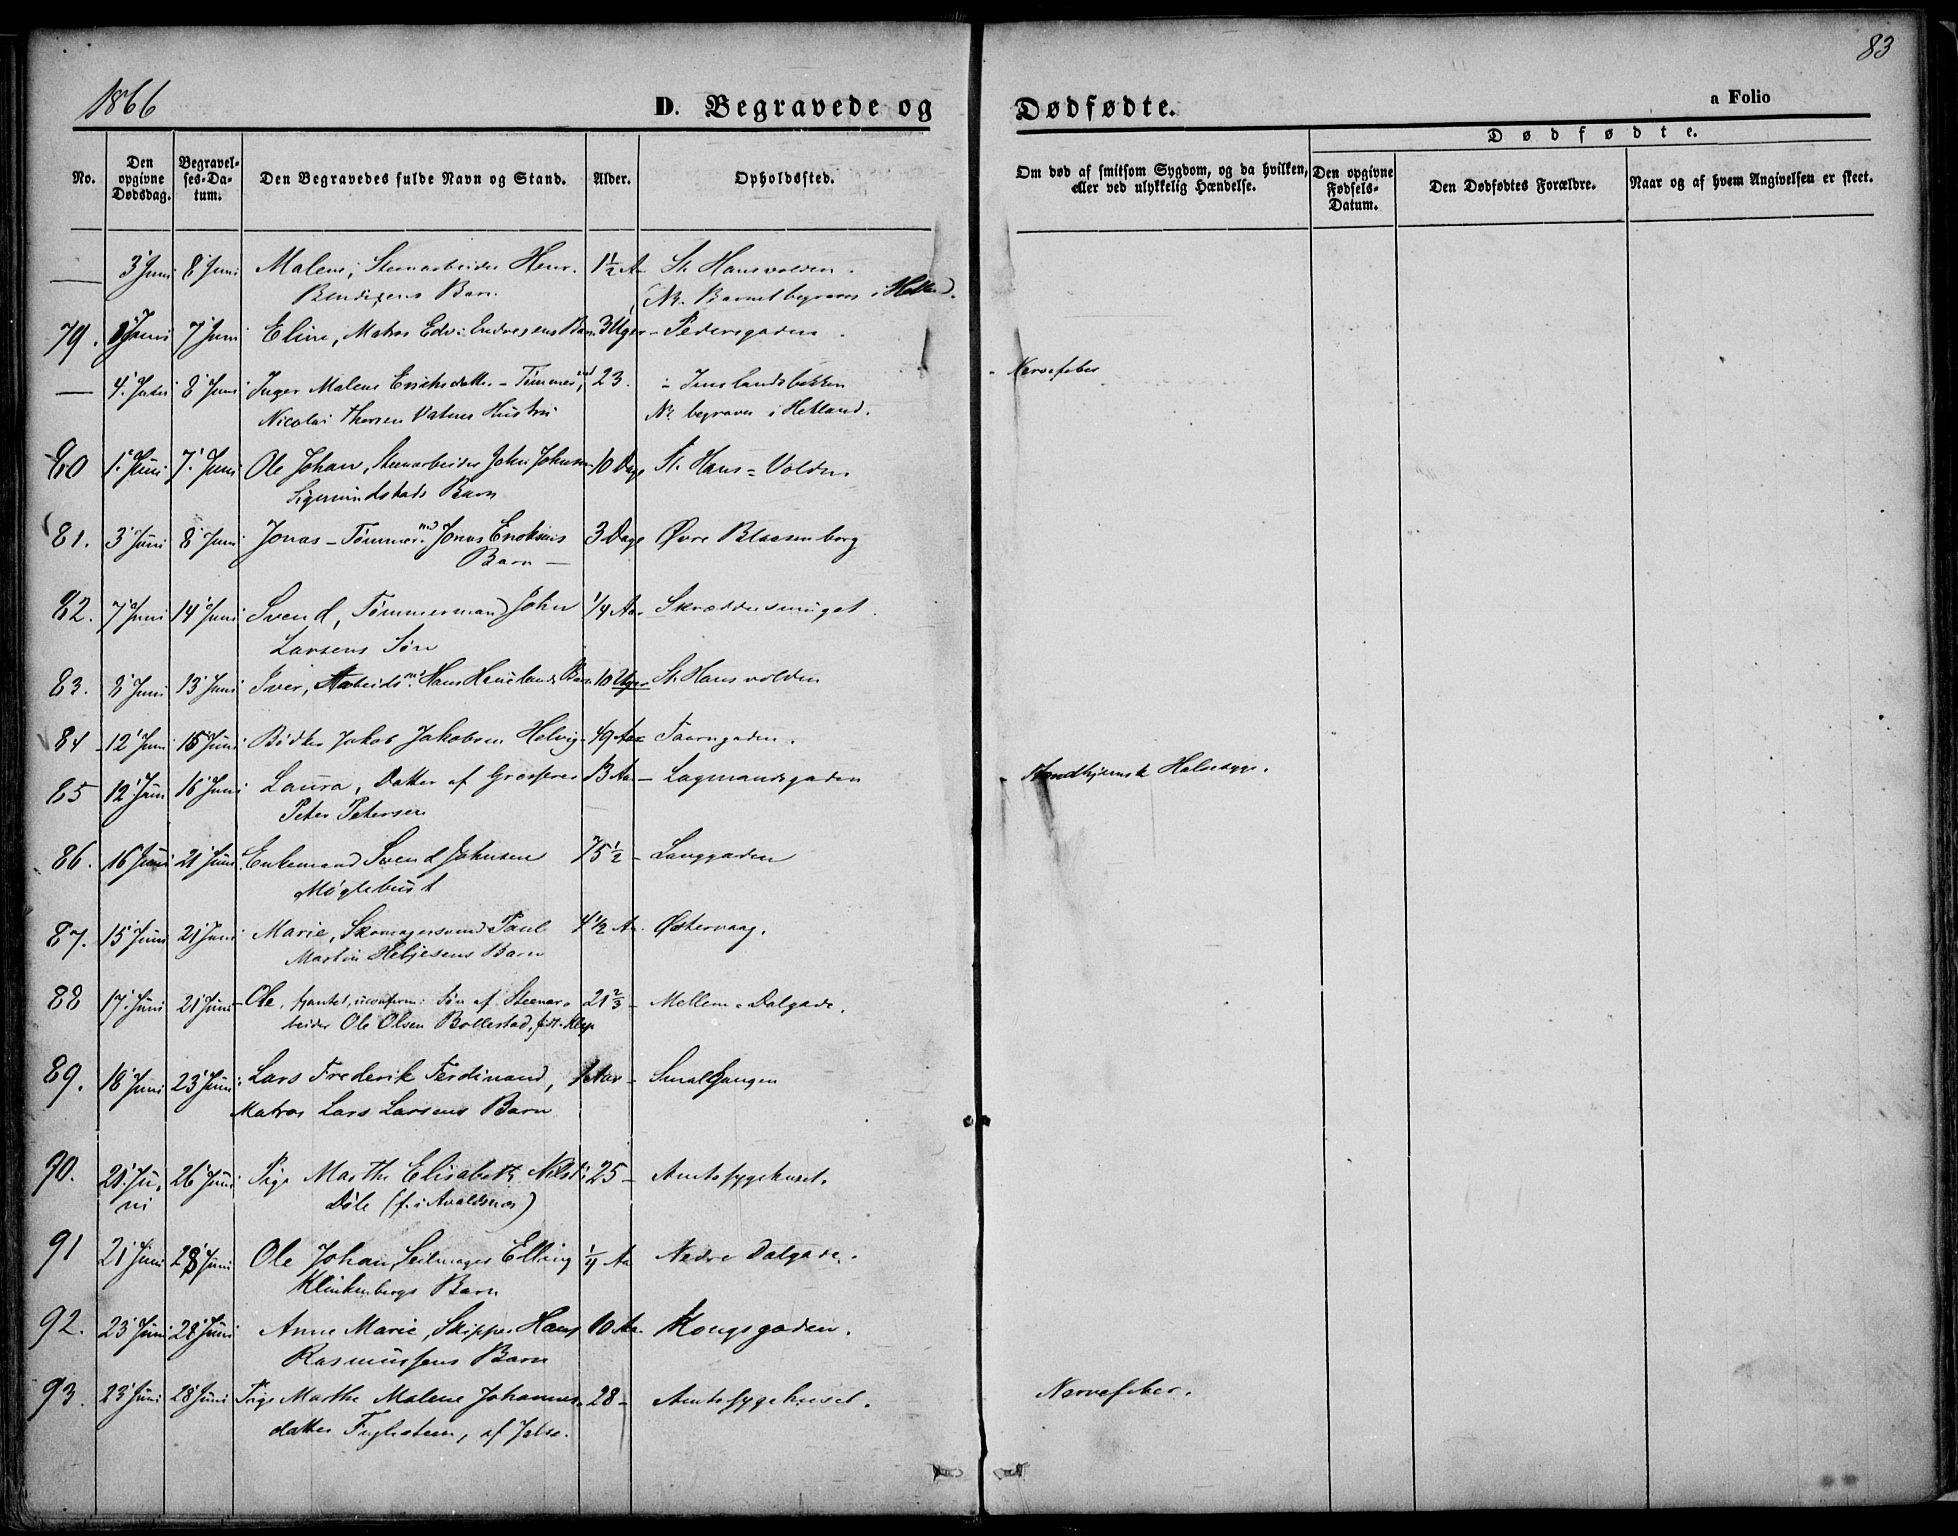 83
1866
D. Begravede og Dødfødte.
a Folio
No.
Den opgivne Dødsdag.
Begravelses-Datum.
Den Begravedes fulde Navn og Stand.
Alder.
Opholdssted.
Om død af smitsom Sygdom, og da hvilken, eller ved ulykkelig Hændelse.
Dødfødte.
Den opgivne Fødsels-Datum.
Den Dødfødtes Forældre.
Naar og af hvem Angivelsen er skeet.
— 3' Juni 8' Juni Malene, Steenarbeider Henr. 1½ Aar St. Hansvolden.
Bendixens Barn NB. Barnet begraves i Hetland.
79. Juni 7' Juni Eline, Matros Edv. Endresens Barn 3 Uger – Pedersgaden.
— 4' Juni 8' Juni Inger Malene Eriksdatter – Tømmermd 23. – Jenslandsbekken Nervefeber
Nicolai Thorsen Vatnes Hustru NB begraves i Hetland.
80 1' Juni 7' Juni Ole Johan, Steenarbeider John Johnsen 10 Dage St. Hans-Volden
Sigmundstads Barn
81. 3' Juni 8' Juni Jonas – Tømmermd Jonas Enoksens 3 Dage Øvre Blaasenborg
Barn —
82. 7' Juni 14' Juni Svend, Tømmermand John ¼ Aar Skræddersmuget.
Larsens Søn
83. 8' Juni 13' Juni Iver, Arbeidsm. Hans Hauelands Barn 10 Uger St. Hansvolden
84 12' Juni 15' Juni Bødker Jakob Jakobsen Helvig 49 Aar Taarngaden.
85 12' Juni 16' Juni Laura, Datter af Grosserer 13 Aar – Lagmandsgaden – Strandhjemsk Halssyge.
Peter Petersen
86. 16' Juni 21' Juni Enkemand Svend Johnsen 75½ – Langgaden
Møglebust
87. 15' Juni 21' Juni Marie, Skomagersvend Paul 4½ Aar. Østervaag.
Martin Heljesens Barn
88 17' Juni 21' Juni Ole, uconfirm: Søn af Steenar- 21⅔ – Mellem-Dalgade.
beider Ole Olsen Bollestad, født i Klep
89. 18' Juni 23' Juni Lars Frederik Ferdinand, 1 Aar – SmalGangen
Matros Lars Larsens Barn
90. 21' Ju- 26' Juni Pige Marthe Elisabeth Nilsd: 25 – Amtssygehuset.
ni Døle (f. i Avaldsnæs)
91 21' Juni 28' Juni Ole Johan, Seilmager Elling ¼ Aar Nedre Dalgade.
Klinkenbergs Barn
92. 23' Juni 28' Juni Anne Marie, Skipper Hans 10 Aar. Kongsgaden.
Rasmussens Barn
93. 23' Juni 28' Juni Pige Marthe Malene Johannes- 28 – Amtssygehuset. Nervefeber.
datter Fuglesteen, af Jelse.